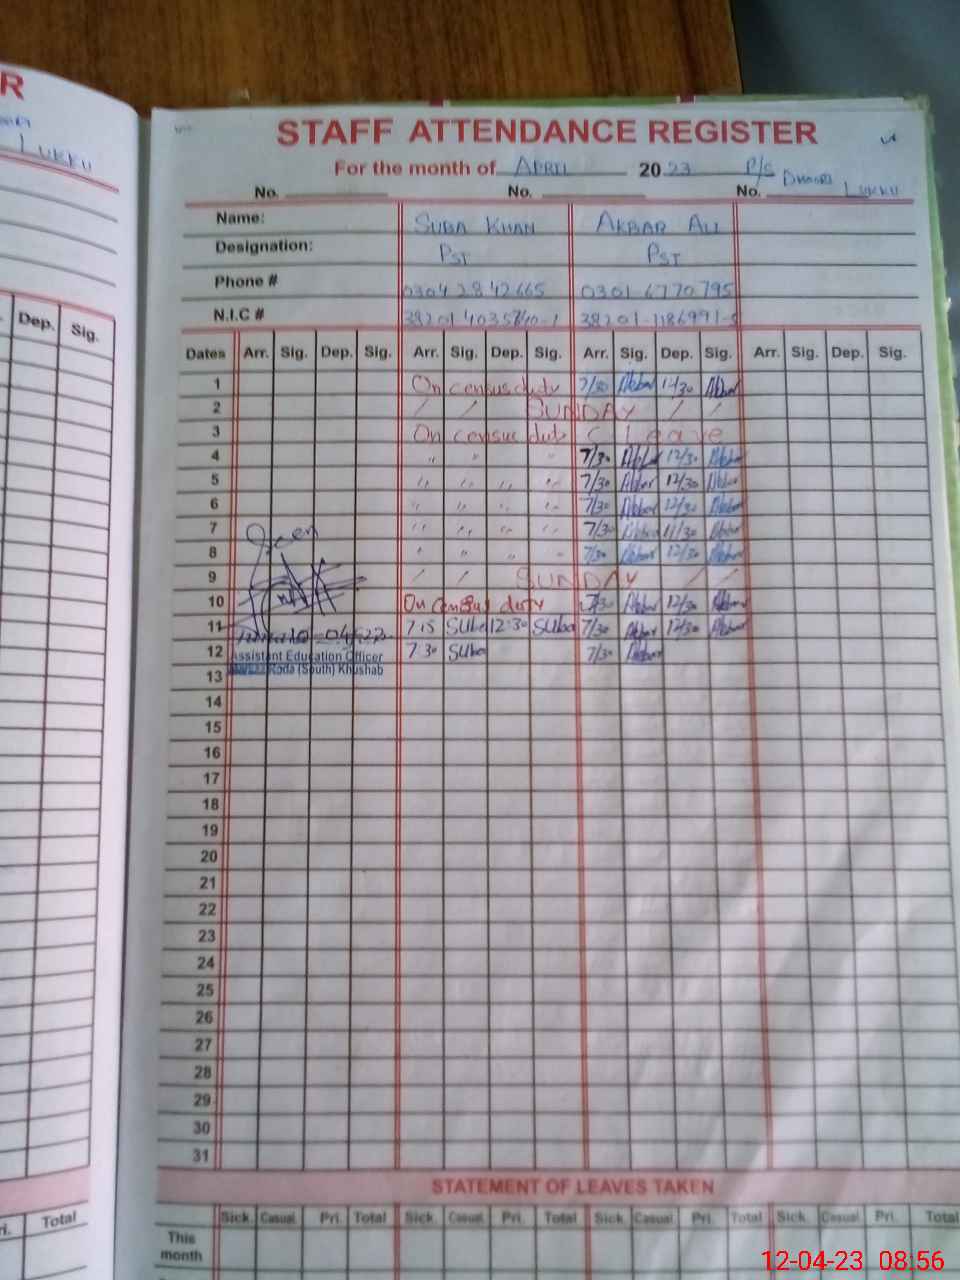 R
LUKKU
STAFF ATTENDANCE REGISTER
For the month of APRIL 2023 P/S DHOKRI LUKKU
No. No. No.
Name: SUBA KHAN AKBAR ALI
Designation: PST PST
Phone # 0304 2842665 0301-6770795
N.I.C # 38201-1186991-5
Dep. Sig.
Dates Arr. Sig. Dep. Sig. Arr. Sig. Dep. Sig. Arr. Sig. Dep. Sig. Arr. Sig. Dep. Sig.
1 On census duty 7/30 Akbar 12/30 Akbar
2 / / SUNDAY / /
3 On census duty C Leave
4 " " " 7/30 Akbar 12/30 Akbar
5 " " " " 7/30 Akbar 12/30 Akbar
6 " " " " 7/30 Akbar 12/30 Akbar
7 " " " " 7/30 Akbar 11/30 Akbar
8 " " " " 7/30 Akbar 12/30 Akbar
9 / / SUNDAY / /
10 On census duty 7/30 Akbar 12/30 Akbar
11 7 15 SUba 12:30 SUba 7/30 Akbar 12/30 Akbar
12 7 30 SUba 7/30 Akbar
Seen
Assistant Education Officer
Roda (South) Khushab
13
14
15
16
17
18
19
20
21
22
23
24
25
26
27
28
29
30
31
STATEMENT OF LEAVES TAKEN
Total
Sick. Casual. Pri. Total Sick. Casual. Pri. Total Sick. Casual. Pri. Total Sick. Casual. Pri. Total
This month
12-04-23 08:56